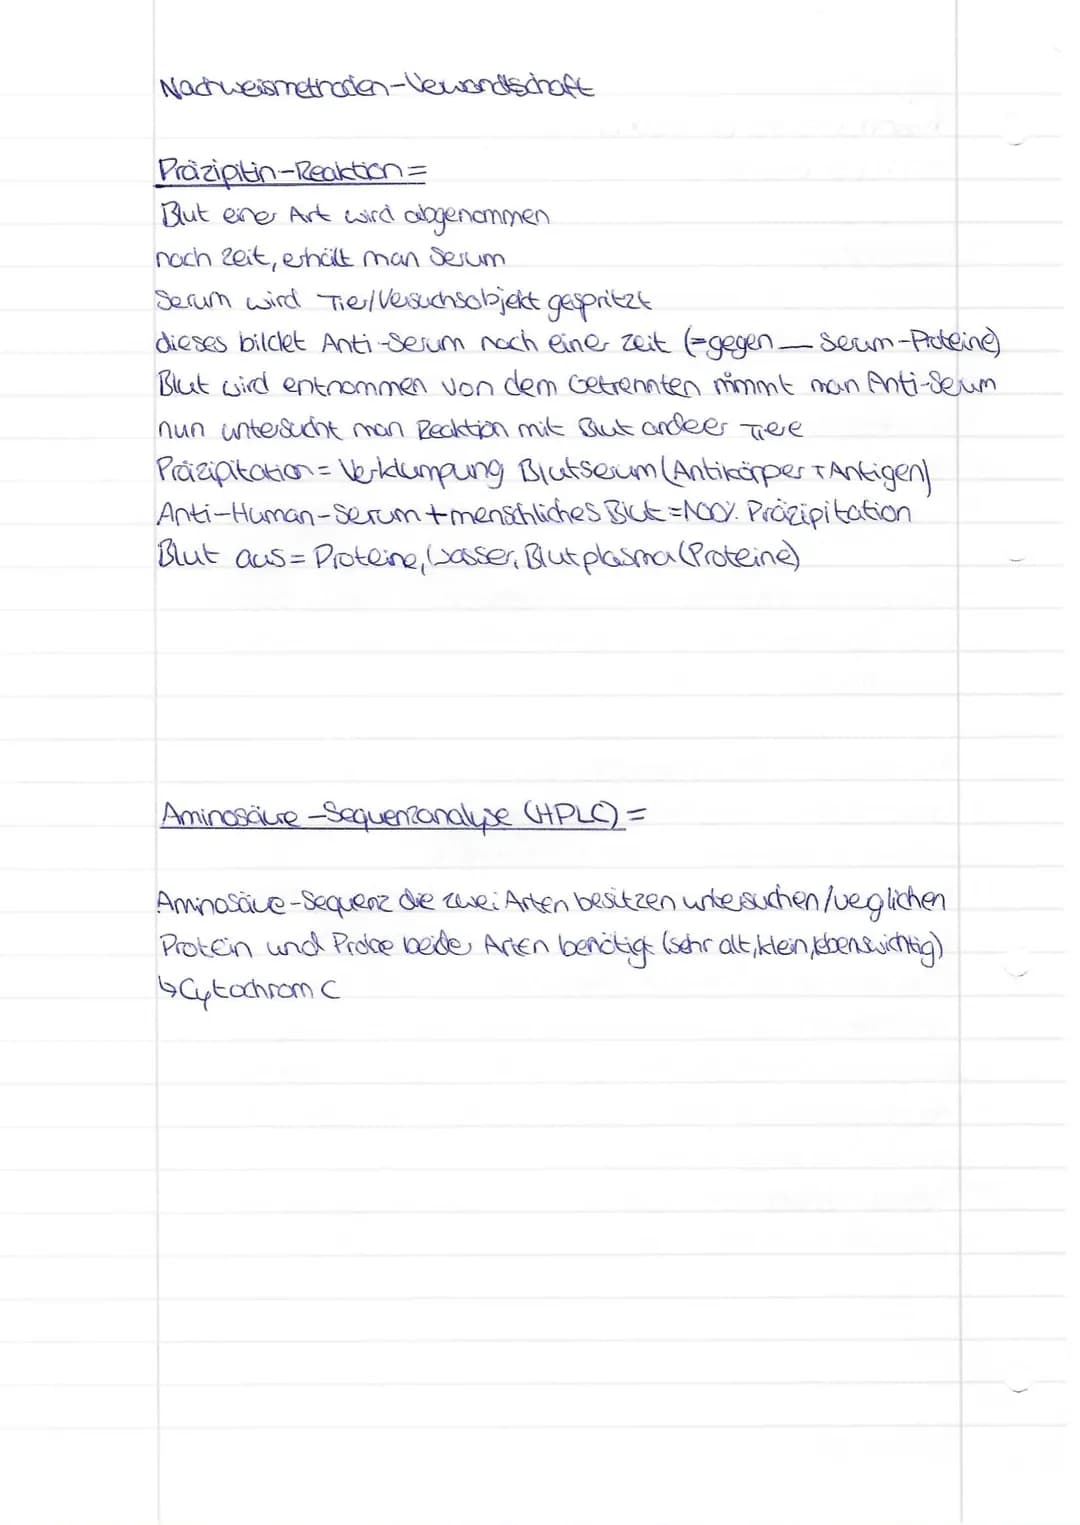 Nachweismethoden-Vewandschaft
Präzipitin-Reaktion=
Blut einer Art wird abgenommen
nach Zeit, erhält man Serum
Serum wird Tier/Versuchsobjekt gespritzt
dieses bildet Anti-Serum nach einer Zeit (=gegen __ Serum-Proteine)
Blut wird entnommen von dem Getrennten nimmt man Anti-Serum
nun untersucht man Reaktion mit Blut anderer Tiere
Präzipitation = Verklumpung Blutserum (Antikörper + Antigen)
Anti-Human-Serum + menschliches Blut = 100% Präzipitation
Blut aus = Proteine, Wasser, Blutplasma (Proteine)
Aminosäure-Sequenzanalyse (HPLC) =
Aminosäure-Sequenz die zwei Arten besitzen untersuchen/verglichen
Protein und Probe beider Arten benötigt (sehr alt, klein, lebenswichtig)
↳ Cytochrom C